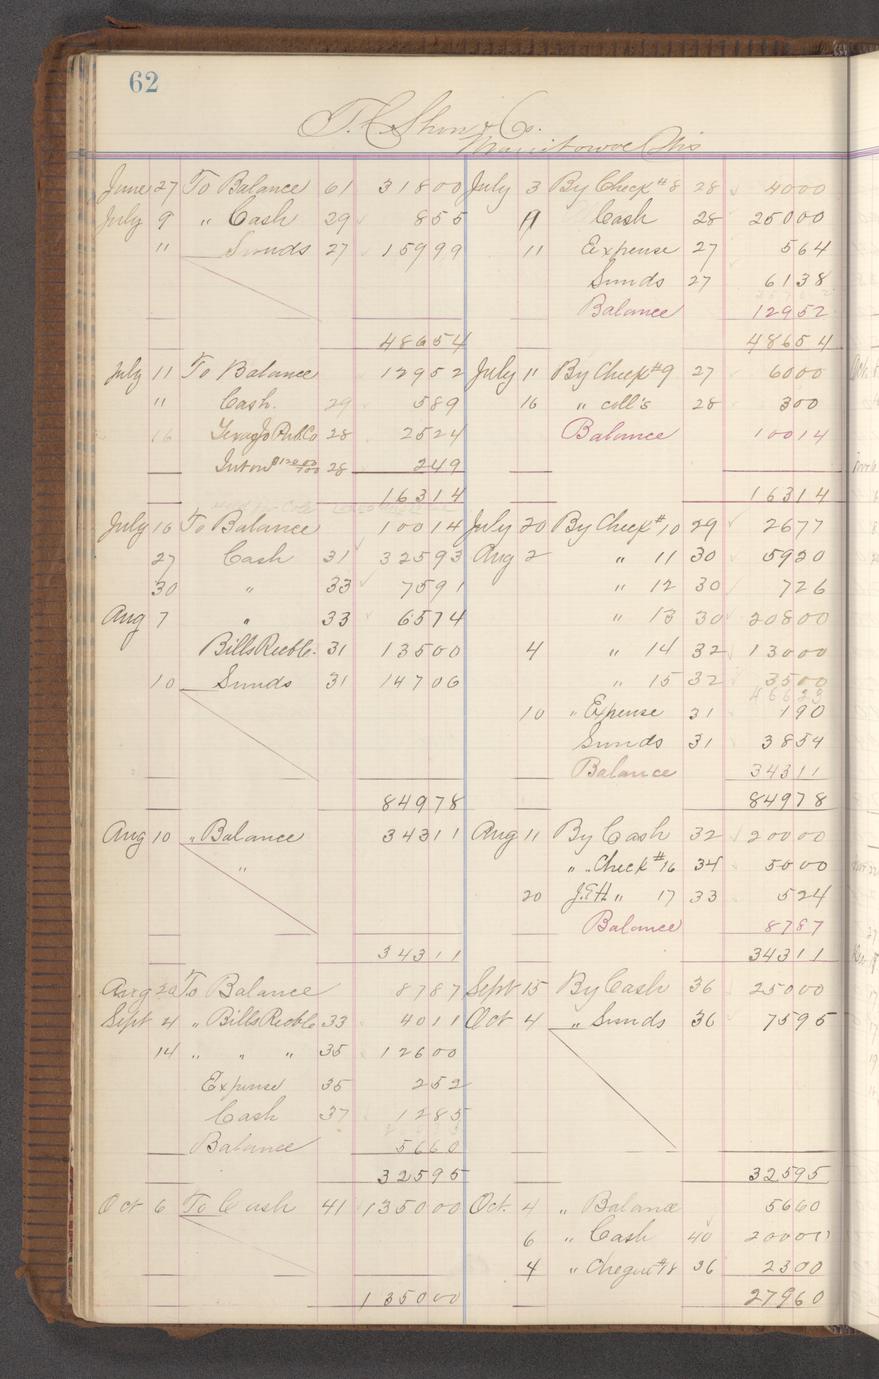 62
T. C. Shov & Co.
Manitowoc Wis
June 27 To Balance 61 31800 July 3 By Check #8 28 4000
July 9 " Cash 29 855 9 Cash 28 25000
" Sunds 27 15999 11 Expense 27 564
Sunds 27 6138
Balance 12952
48654 48654
July 11 To Balance 12952 July 11 By Check #9 27 6000
" Cash. 29 589 16 " coll's 28 300
16 28 2524 Balance 10014
Int on 28 249
16314 16314
July 16 To Balance 10014 July 20 By Check #10 29 2677
27 Cash 31 32593 Aug 2 " 11 30 5920
30 " 33 7591 " 12 30 726
Aug 7 " 33 6574 " 13 30 20800
Bills Recble. 31 13500 4 " 14 32 13000
10 Sunds 31 14706 " 15 32 3500
46623
10 " Expense 31 190
Sunds 31 3854
Balance 34311
84978 84978
Aug 10 " Balance 34311 Aug 11 By Cash 32 20000
" " " Check #16 34 5000
20 " 17 33 524
Balance 8787
34311 34311
Aug 20 To Balance 8787 Sept 15 By Cash 36 25000
Sept 4 " Bills Recble 33 4011 Oct 4 " Sunds 36 7595
14 " " " 35 12600
Expense 35 252
Cash 37 1285
Balance 5660
32595 32595
Oct 6 To Cash 41 135000 Oct. 4 " Balance 5660
6 " Cash 40 20000
4 " Cheque #18 36 2300
135000 27960